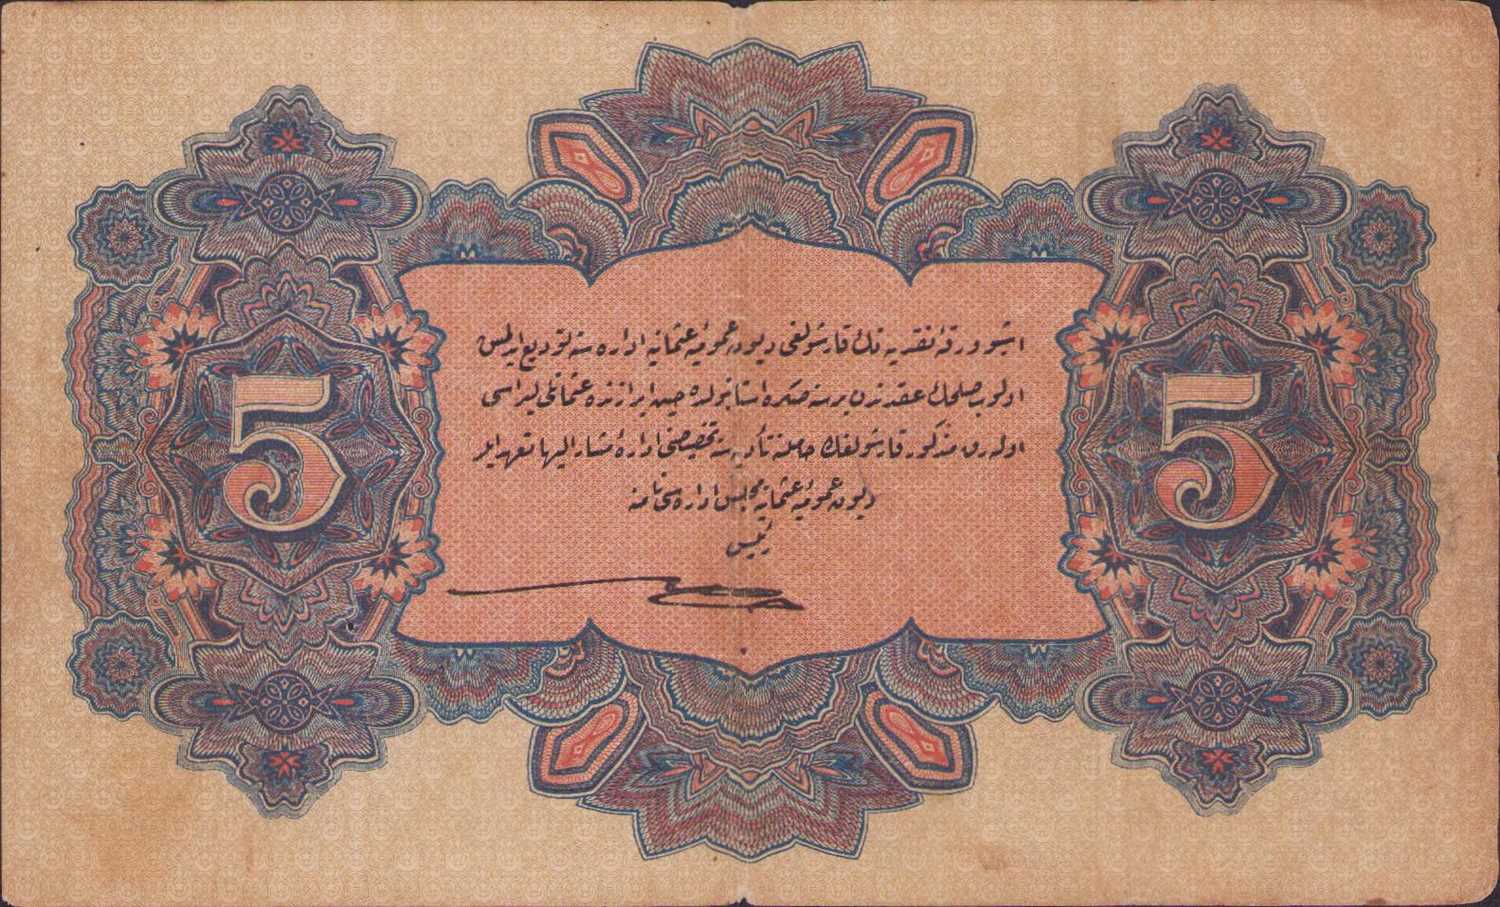 5
5
اشبو ورقهٔ نقدیه نك قارشولغی دیون عمومیهٔ عثمانیه اداره سنه تودیع ایدلمش
اولوب صلحك عقدندن بر سنه صكره استانبولده بهر ایراز ندہ عثمانلی لیراسی
اوله رق مذكور قارشولغك حاملنه تأدیه سنه تخصیصنی ادارهٔ مشار الیها تعهد ایلر
دیون عمومیهٔ عثمانیه مجلس اداره سی نامنه
رئیس